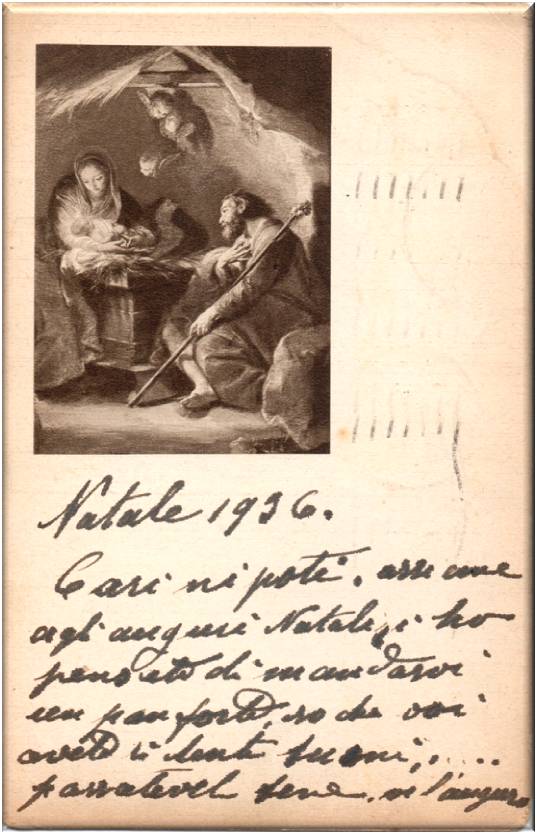 Natale 1936.
Cari nipoti, assieme
agli auguri Natalizi ho
pensato di mandarvi
un panforte, so che voi
avete i denti buoni,....
passatevel bene, ve l'auguro